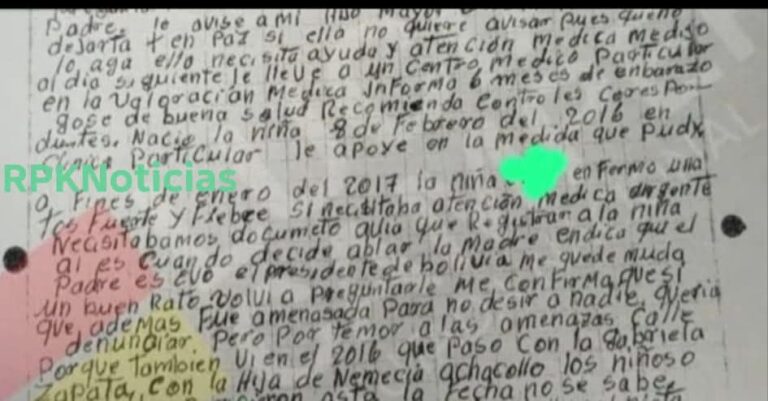 Padre, le avise a Mi Hijo Mayor
dejarta t en Paz si ella no quiere avisar pues queno
lo aga ello necisita ayuda y atención Medica Medijo
al dia siguiente le lleve a un Centro Medico Particular
en la Valoración Medica Informa 6 meses de enbarazo
gose de buena salud Recomienda Controles Corespon
duntes. Nacio la niña 8 de Febrero del 2016 en
Clinica Particular le apoye en la medida que pude
RPKNoticias
a Fines de enero del 2017 la niña en Fermo una
tos Fuerte y Fiebre si necisitaba atención Medica urgente
Necisitabamos documeto auia que Registrar a la niña
ai es Cuando decide ablar la Madre endica que el
Padre es evo el presidente de bolivia me quede muda
un buen Rato volvi a Preguntarle Me Confirma que si
que, ademas Fue amenasada Para no desir a nadie, queria
denunciar. Pero Por temor a las amenazas Calle
Porque tambien vi en el 2016 que Paso Con la Gabriela
Zapata, Con la Hija de Nemecia achacollo los niños o
asta la Fecha no se sabe